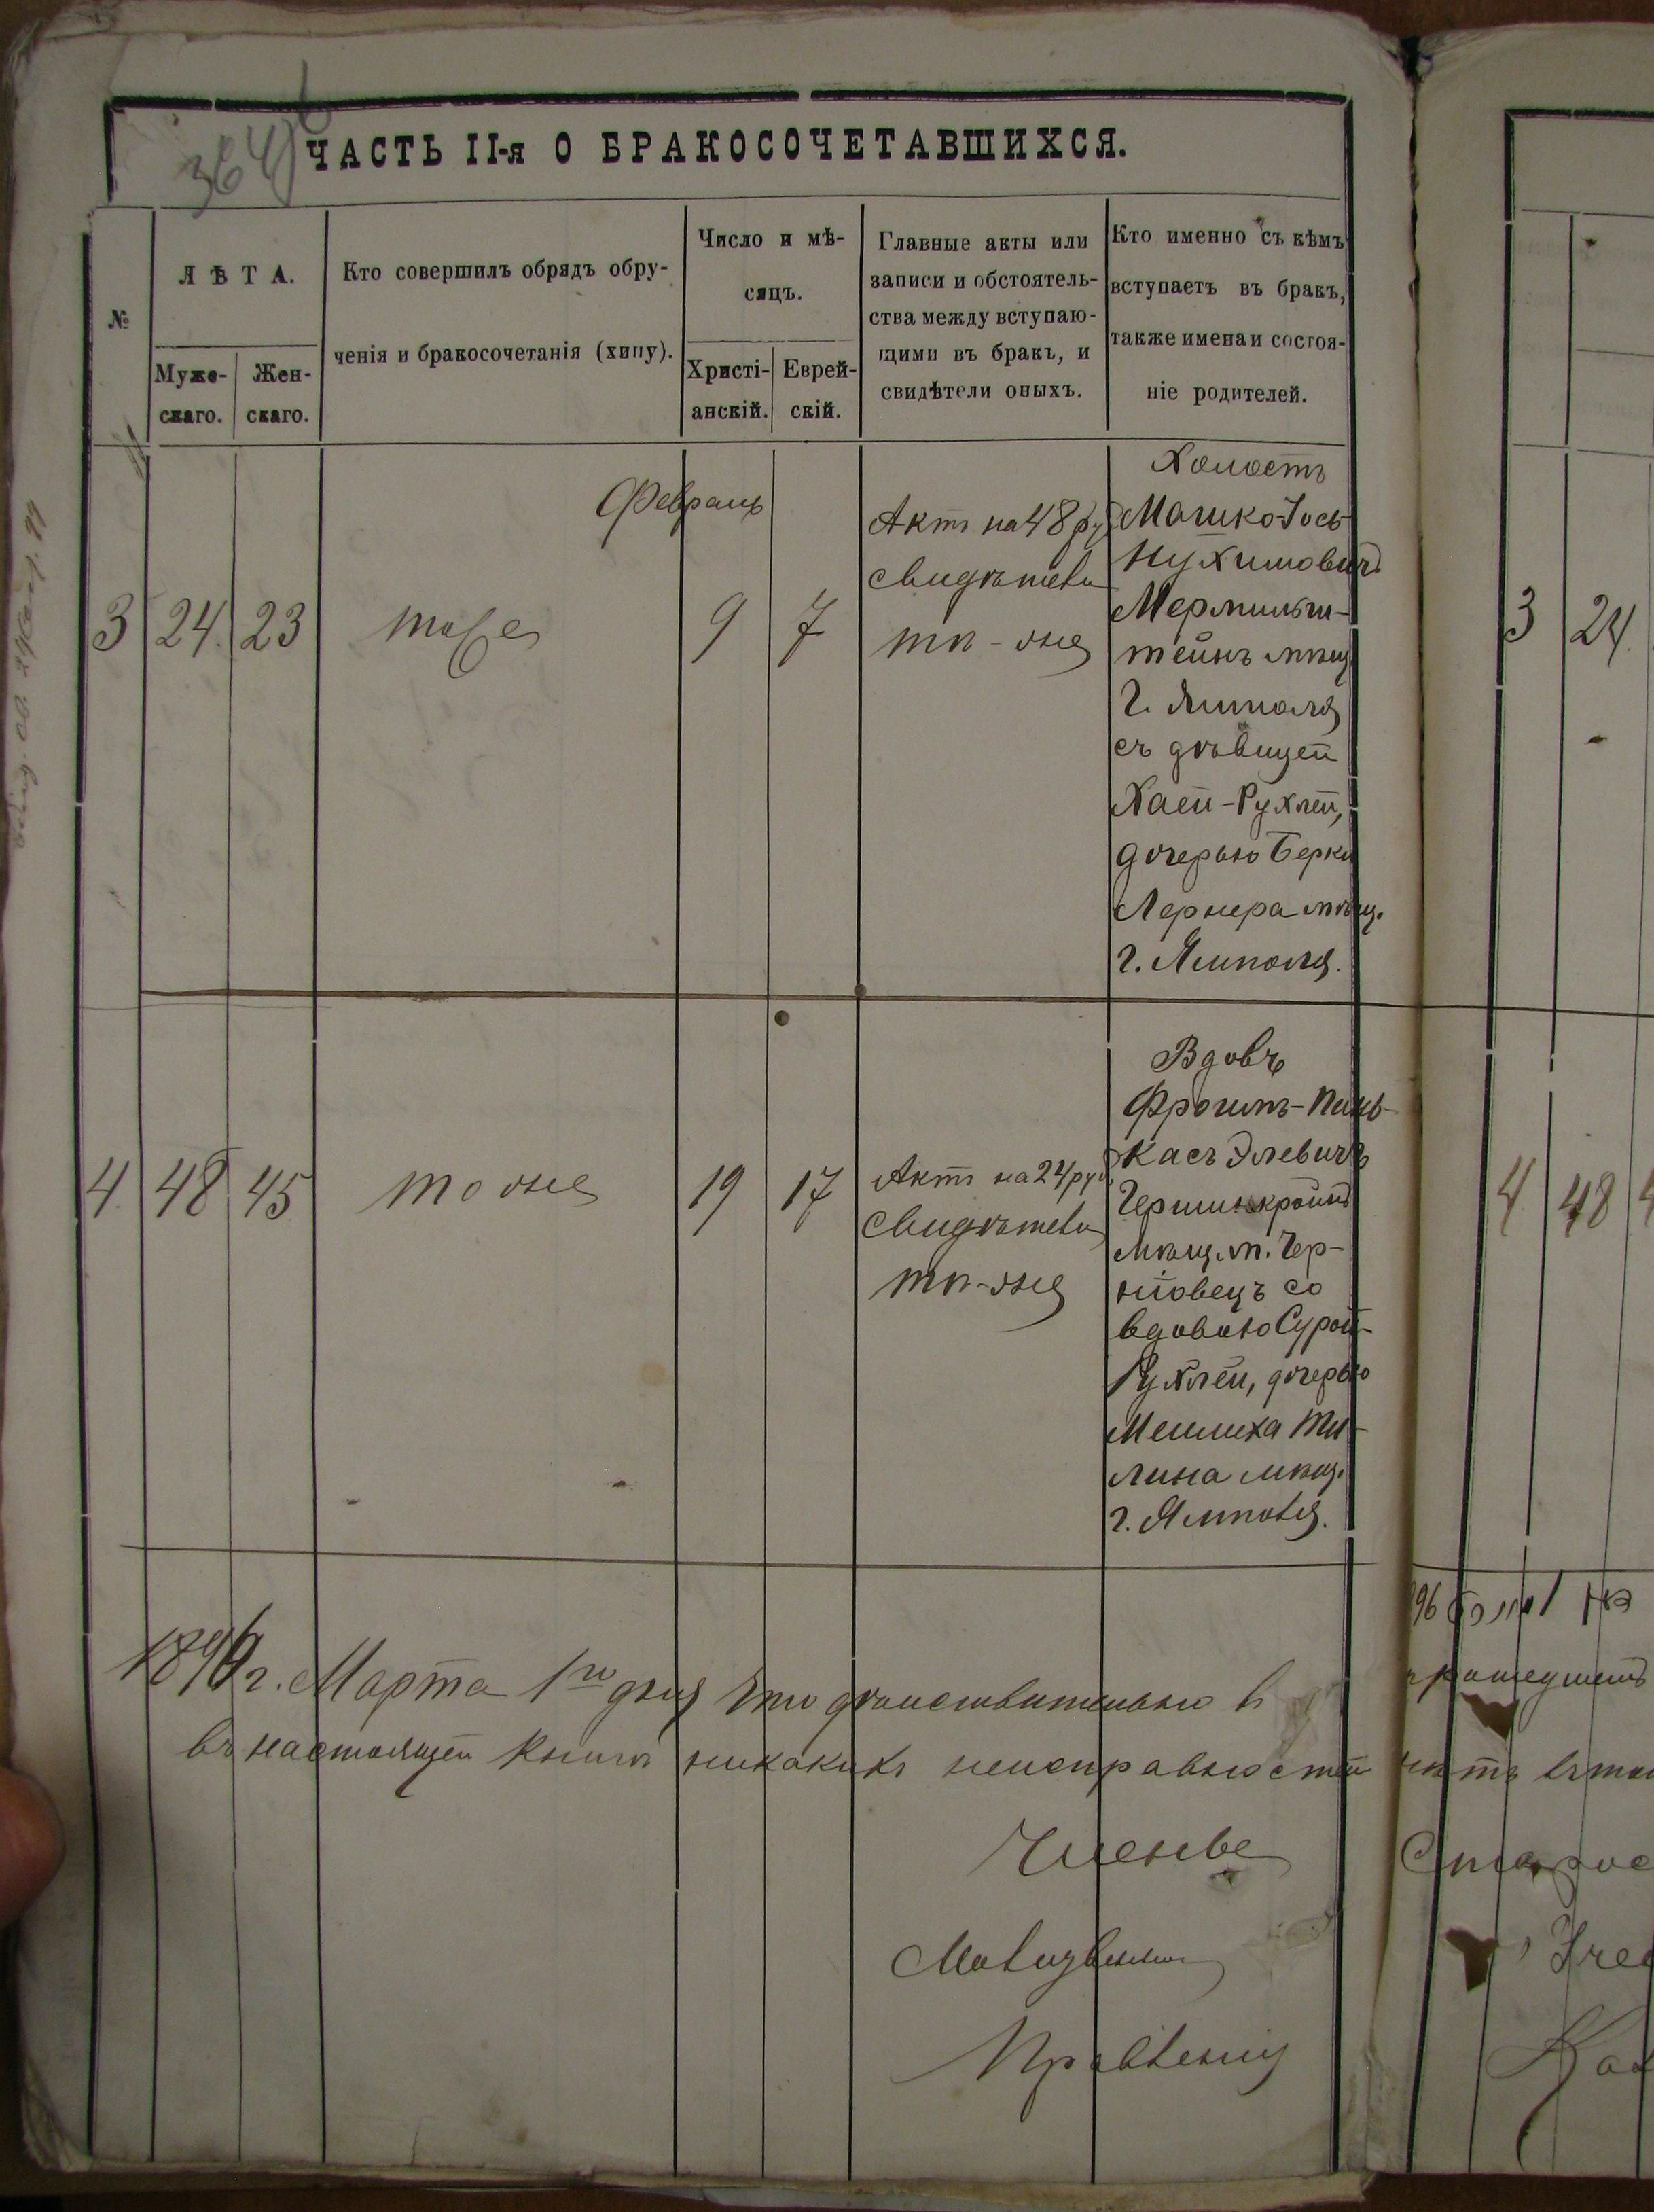 364
ЧАСТЬ II-я О БРАКОСОЧЕТАВШИХСЯ.
№
ЛѢТА.
Муже-
скаго.
Жен-
скаго.
Кто совершилъ обрядъ обру-
ченія и бракосочетанія (хипу).
Число и мѣ-
сяцъ.
Христі-
анскій.
Еврей-
скій.
Главные акты или
записи и обстоятель-
ства между вступаю-
щими въ бракъ, и
свидѣтели оныхъ.
Кто именно съ кѣмъ
вступаетъ въ бракъ,
также имена и состоя-
ніе родителей.
Февраль
3
24.
23
тоже
9
7
Актъ на 48 ру
свидѣтели
тѣ-же
Холостъ
Мошко-Іось
Нухимовичъ
Мермильш-
тейнъ мѣщ
г. Ямполя
съ дѣвицей
Хаей-Рухлей,
дочерью Берки
Лернера мѣщ.
г. Ямполя.
4.
48
45
тоже
19
17
Актъ на 24 руб
свидѣтели
тѣ-же
Вдовъ
Фроимъ-Пинь-
касъ Элевичъ
мѣщ. м. Чер-
новецъ со
вдовою Сурой-
Рухлей, дочерью
Мейлиха Ти-
лина мѣщ.
г. Ямполя.
1896 г. Марта 1го дня что дѣйствительно въ
въ настоящей книгѣ никакихъ неисправностей
Члены
Правленія
3
24.
4
48
4
прошедшемъ
нѣтъ въ том